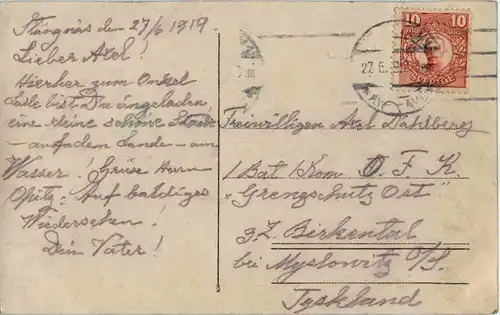 Stängnäs den 27/6 1919
Lieber Axel!
Hierher zum Onkel
bist Du eingeladen,
eine kleine schöne Stadt
auf dem Lande - am
Wasser! Grüße Herrn
Opitz. Auf baldiges
Wiedersehen!
Dein Vater!
10 10
SVERIGE
27.6.19
Freiwilligen Axel Dahlberg
1 Bat 1 Kom O. F. K.
"Grenzschutz Ost"
z.Z. Birkental
bei Myslowitz O/S.
Tyskland